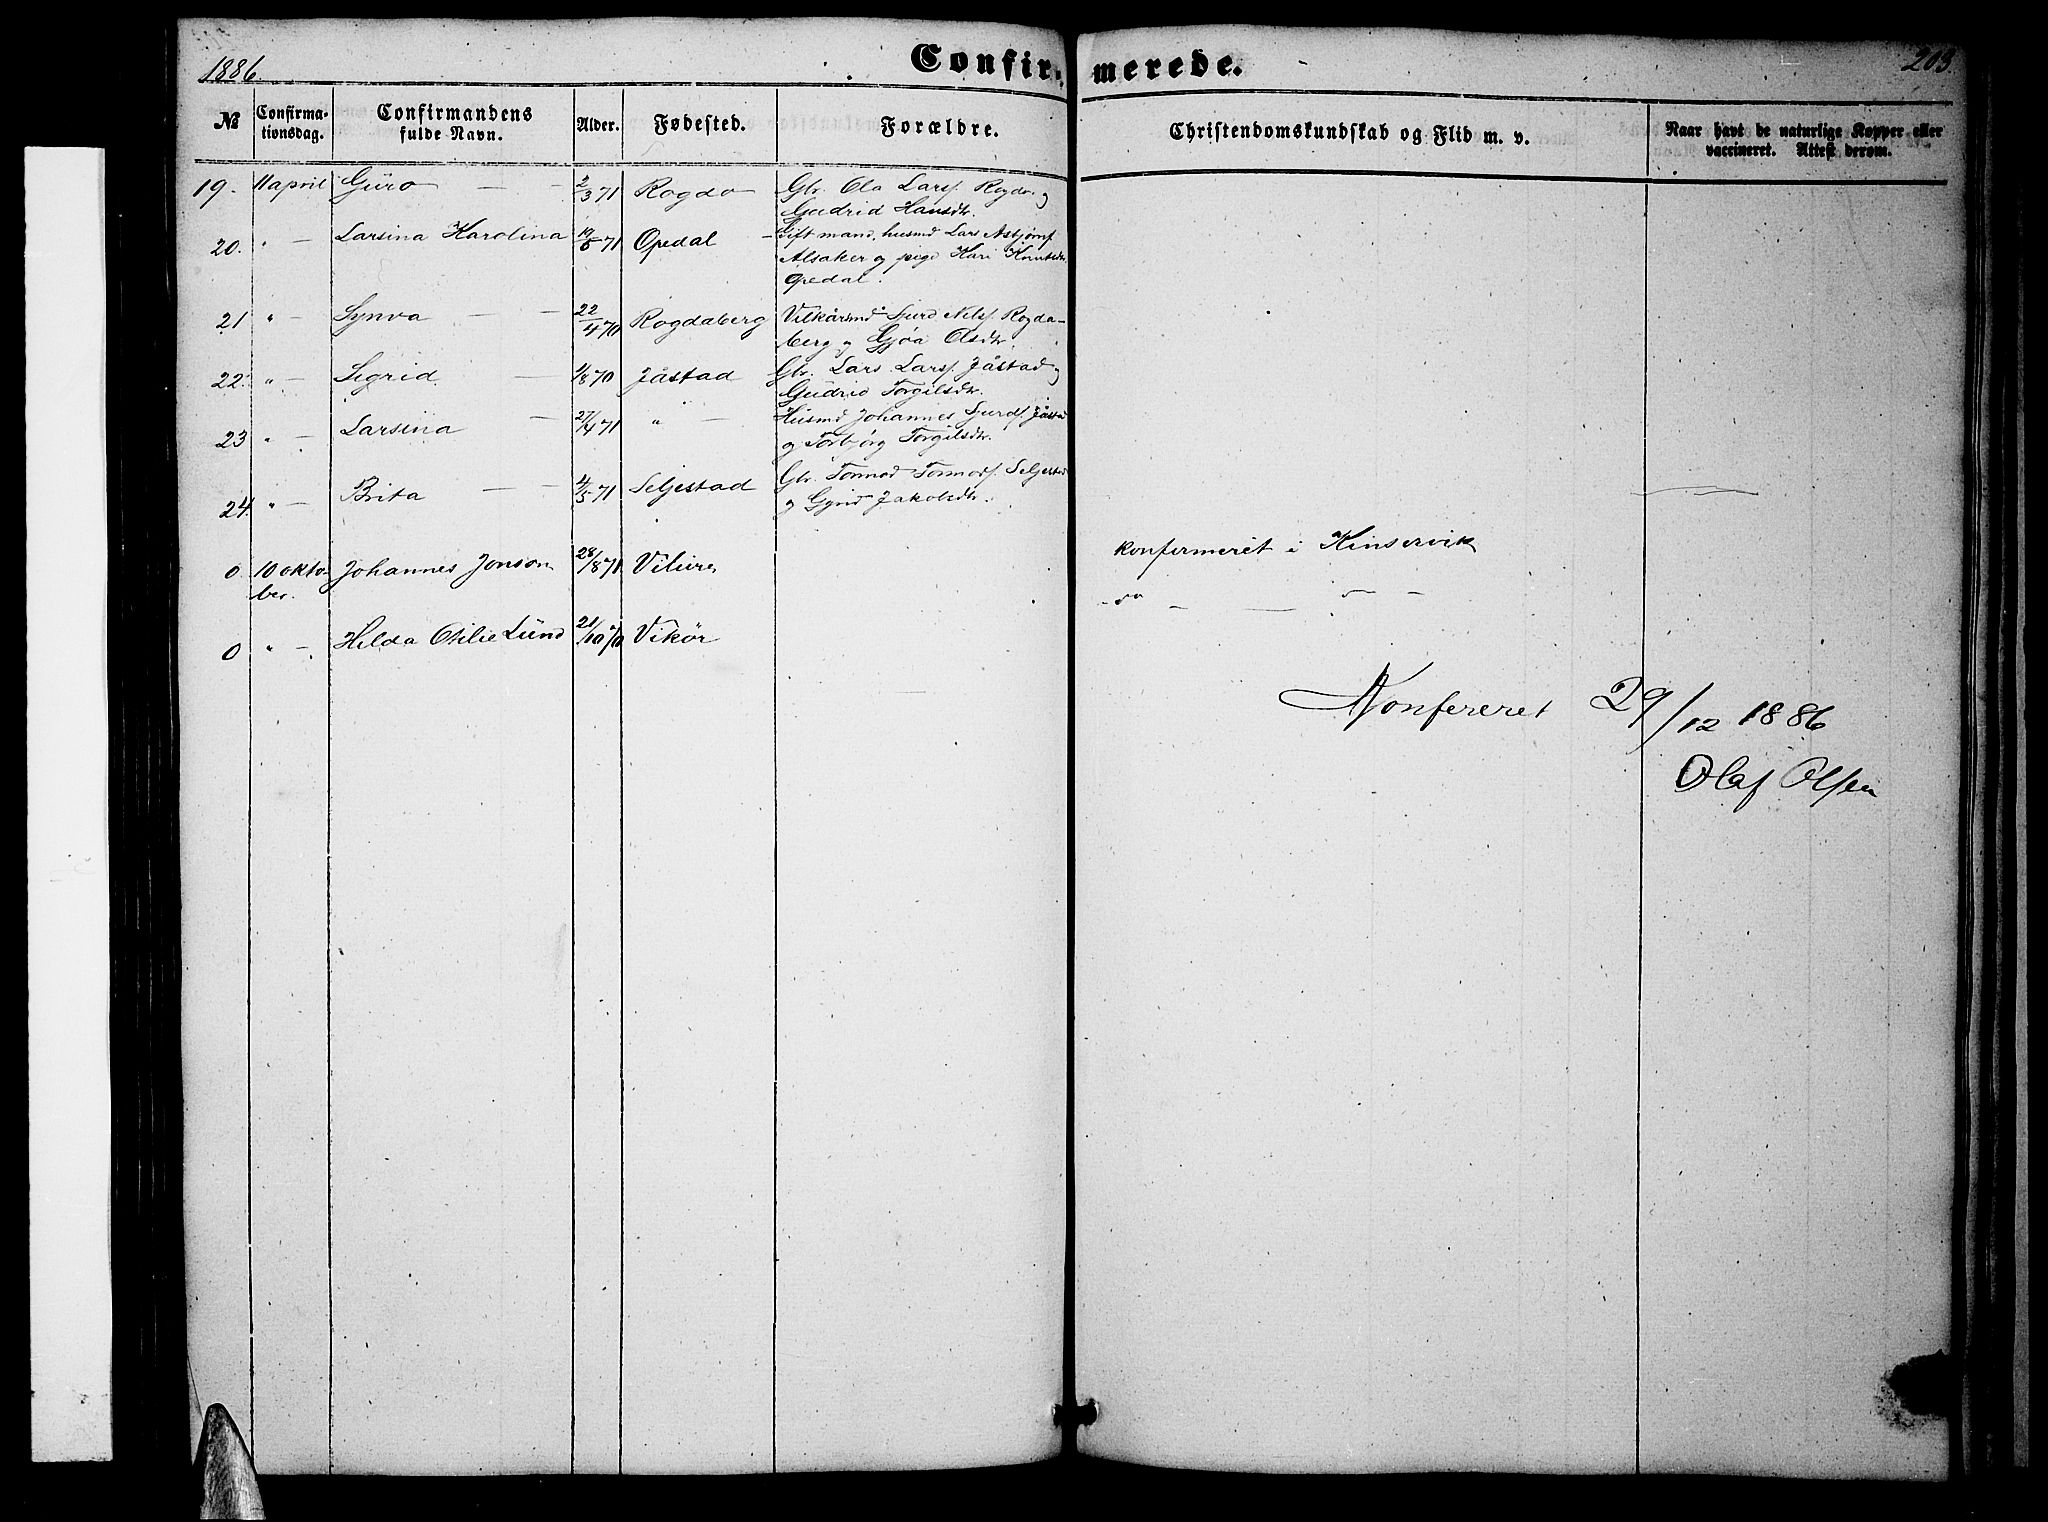 1886.
Confirmerede.
203.
№ Confirmationsdag. Confirmandens fulde Navn. Alder. Fødested. Forældre. Christendomskundskab og Flid m. v. Naar havt de naturlige Kopper eller vaccineret. Attest derom.
19. 11 april Guro — — 2/3 71 Rogde Gbr. Ola Larss. Rogde og
Gudrid Hansdtr.
20. " — Larsina Karolina 19/5 71 Opedal — Gift mand, husmd Lars Asbjørns.
Alsaker og pige Kari Knutsdtr.
Opedal.
21 " — Synva — — 22/4 70 Rogdaberg Vilkårsmd Sjurd Nilss. Rogda-
berg og Gjøa Olsdtr.
22. " — Sigrid — 1/8 70 Jåstad Gbr. Lars Larss. Jåstad og
Gudrid Torgilsdtr.
23 " — Larsina — 27/4 71 " — Husmd Johannes Sjurds. Jåstad
og Torbjørg Torgilsdtr.
24. " — Brita — — 4/5 71 Seljestad Gbr. Tormod Tormods. Seljestad
og Gyrid Jakobsdtr.
0 10 okto- Johannes Jonson 28/8 71 konfirmeret i Kinservik
ber.
0 " — Hilda Otilie Lund 21/10 70 Vikør
Konfereret 29/12 1886
Olaf Olsen